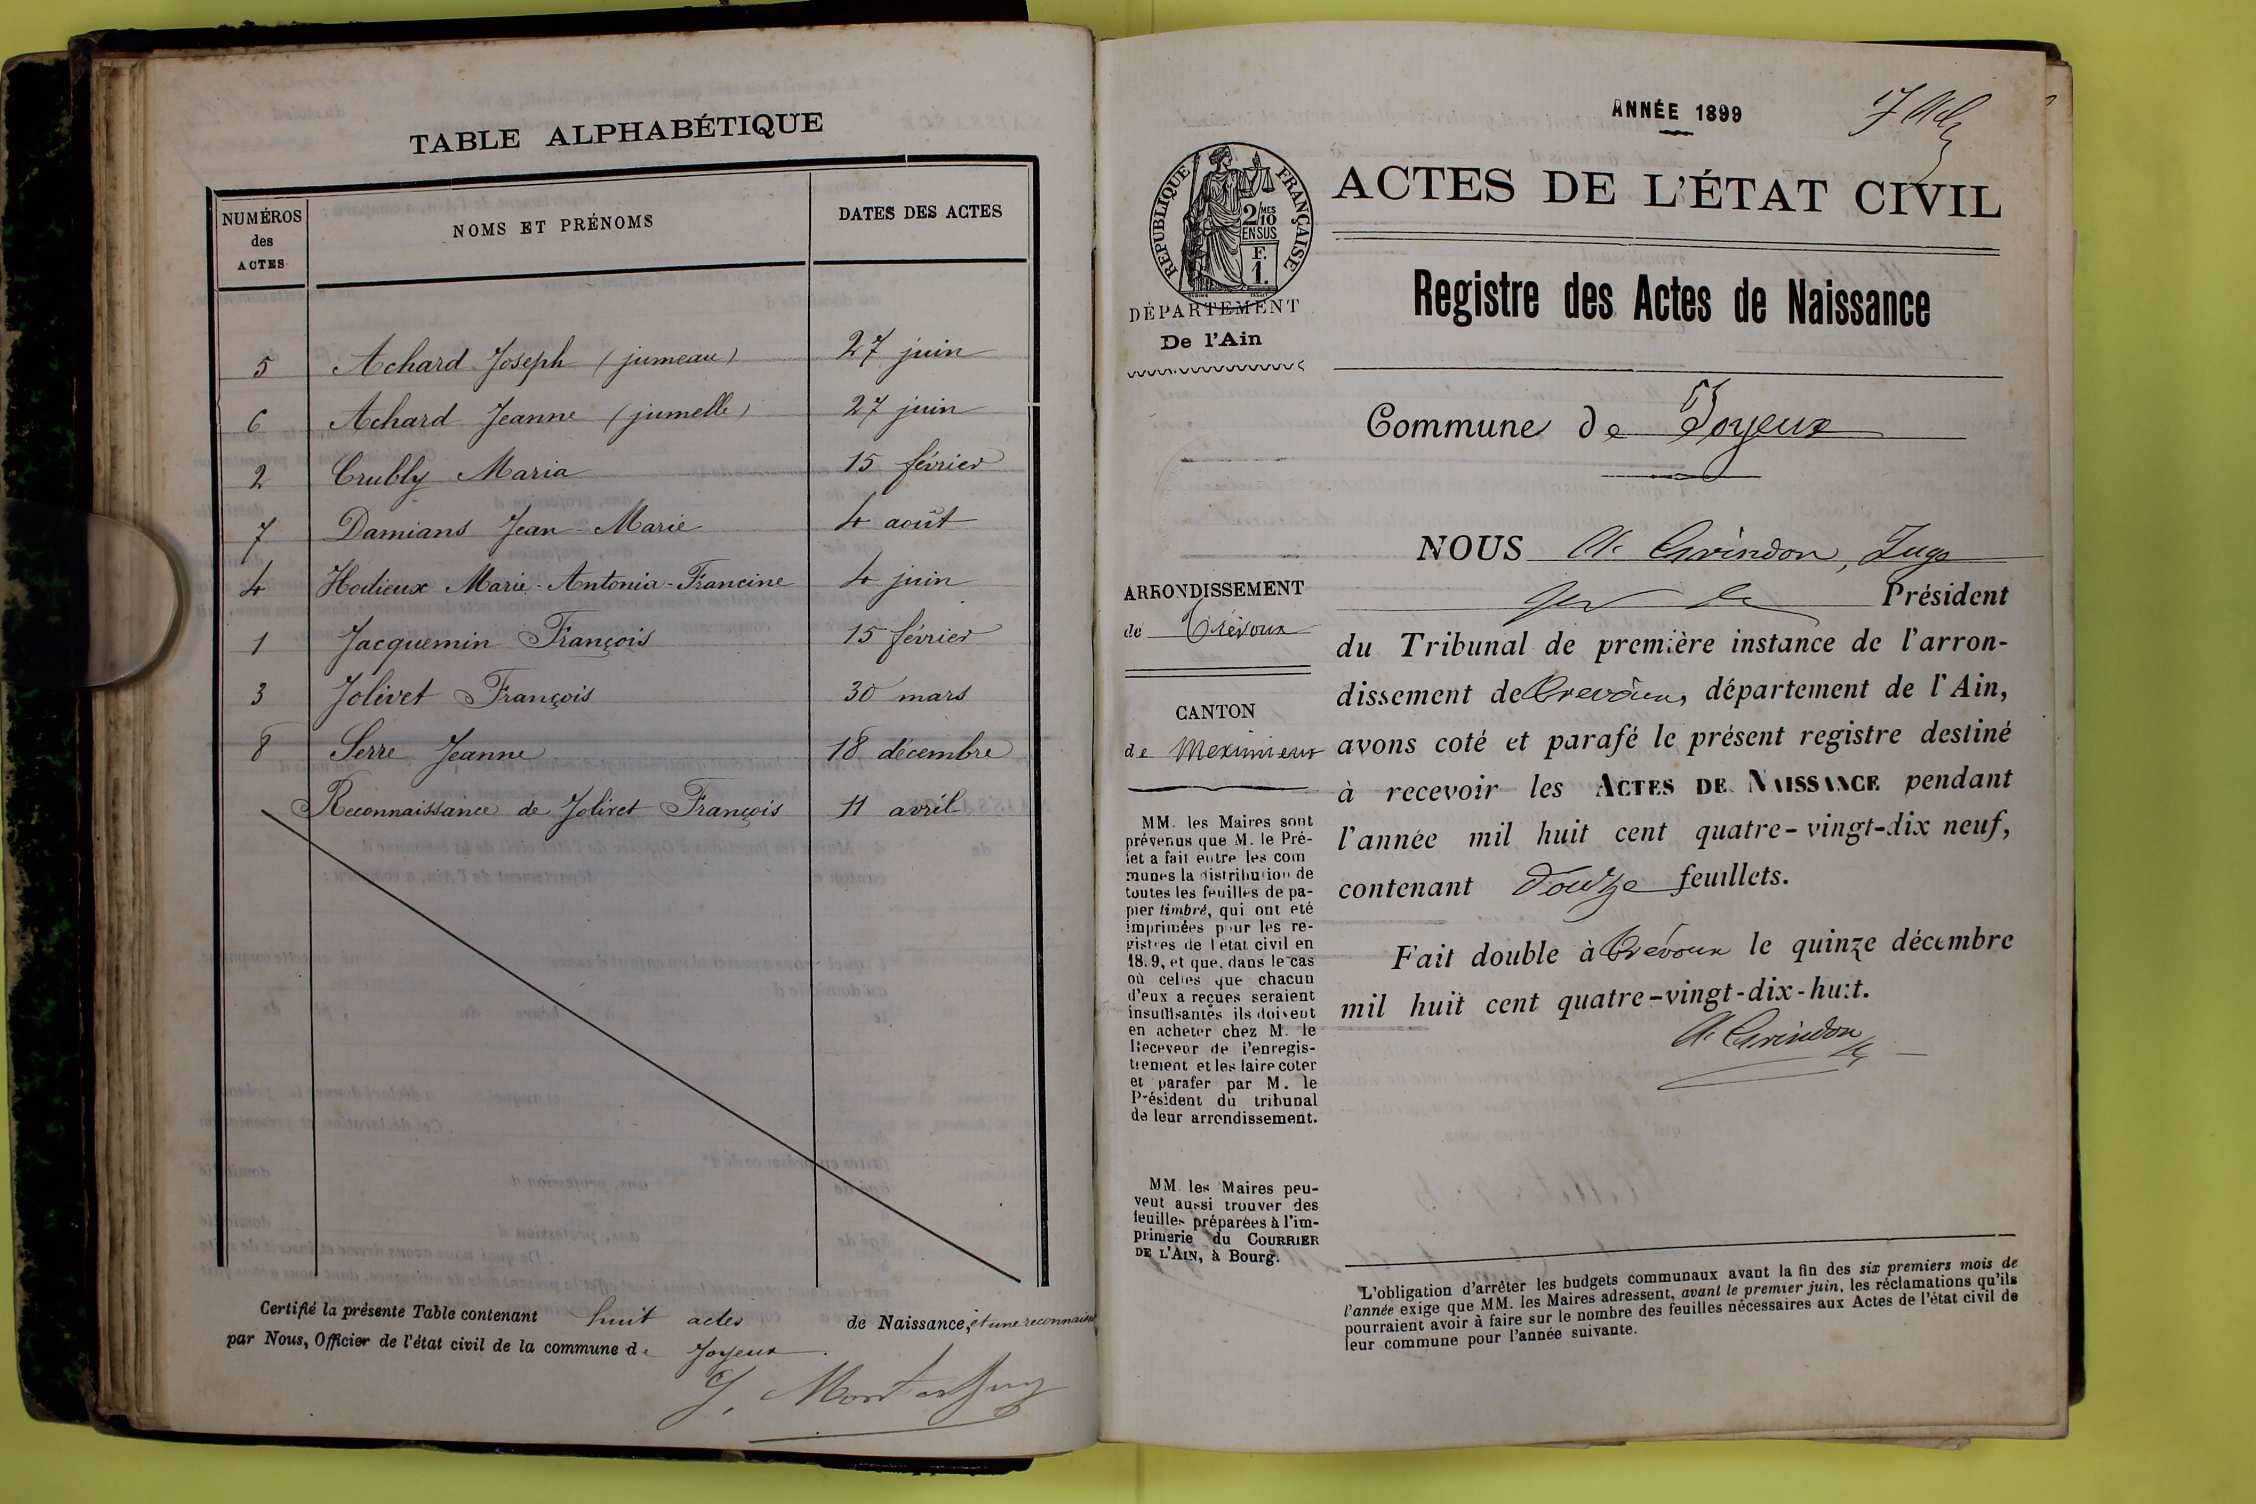 TABLE ALPHABÉTIQUE
NUMÉROS des ACTES
NOMS ET PRÉNOMS
DATES DES ACTES
5 Achard Joseph (jumeau) 27 juin
6 Achard Jeanne (jumelle) 27 juin
2 Crubly Maria 15 février
7 Damians Jean-Marie 4 août
4 Hodieux Marie-Antonia-Francine 4 juin
1 Jacquemin François 15 février
3 Jolivet François 30 mars
8 Serre Jeanne 18 décembre
Reconnaissance de Jolivet François 11 avril
Certifié la présente Table contenant huit actes de Naissance, et une reconnaissance
par Nous, Officier de l'état civil de la commune de Joyeux.
ANNÉE 1899
RÉPUBLIQUE FRANÇAISE
2/10 MES
EN SUS
F.
1.
ACTES DE L'ÉTAT CIVIL
DÉPARTEMENT
De l'Ain
Registre des Actes de Naissance
Commune de Joyeux
ARRONDISSEMENT
de Trévoux
CANTON
de Meximieux
MM. les Maires sont
prévenus que M. le Pré-
fet a fait entre les com
munes la distribution de
toutes les feuilles de pa-
pier timbré, qui ont été
imprimées pour les re-
gistres de l'état civil en
18.9, et que, dans le cas
où celles que chacun
d'eux a reçues seraient
insuffisantes ils doivent
en acheter chez M. le
Receveur de l'enregis-
trement et les faire coter
et parafer par M. le
Président du tribunal
de leur arrondissement.
MM. les Maires peu-
vent aussi trouver des
feuilles préparées à l'im-
primerie du COURRIER
DE L'AIN, à Bourg.
NOUS A. Grindon, Juge
Président
du Tribunal de première instance de l'arron-
dissement de Trévoux, département de l'Ain,
avons coté et parafé le présent registre destiné
à recevoir les ACTES DE NAISSANCE pendant
l'année mil huit cent quatre-vingt-dix neuf,
contenant Douze feuillets.
Fait double à Trévoux le quinze décembre
mil huit cent quatre-vingt-dix-huit.
A. Grindon
L'obligation d'arrêter les budgets communaux avant la fin des six premiers mois de
l'année exige que MM. les Maires adressent, avant le premier juin, les réclamations qu'ils
pourraient avoir à faire sur le nombre des feuilles nécessaires aux Actes de l'état civil de
leur commune pour l'année suivante.